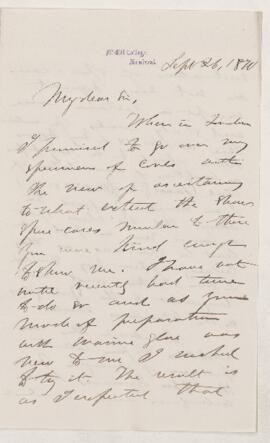 McGill College,
Montreal.
Sept 26, 1870
My dear Sir,
When in London
I promised to go over my
specimens of cones with
the view of ascertaining
to what extent the
spore-cases similar to those
you were kind enough
to show me. I have not
until recently had time
to do so and as your
mode of preparation
with marine glue was
new to me I wished
to try it. The result is
as I expected that